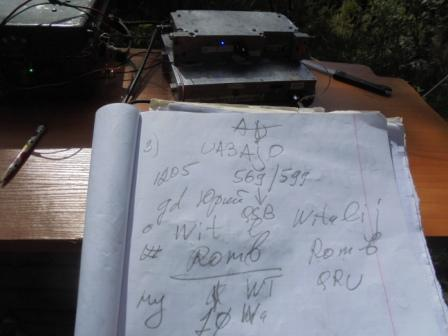 3) UA3AJO
1205 569/599
gd Юрий QSB
Wit Witalij
Romb Romb
my WT QRU
10 Wa